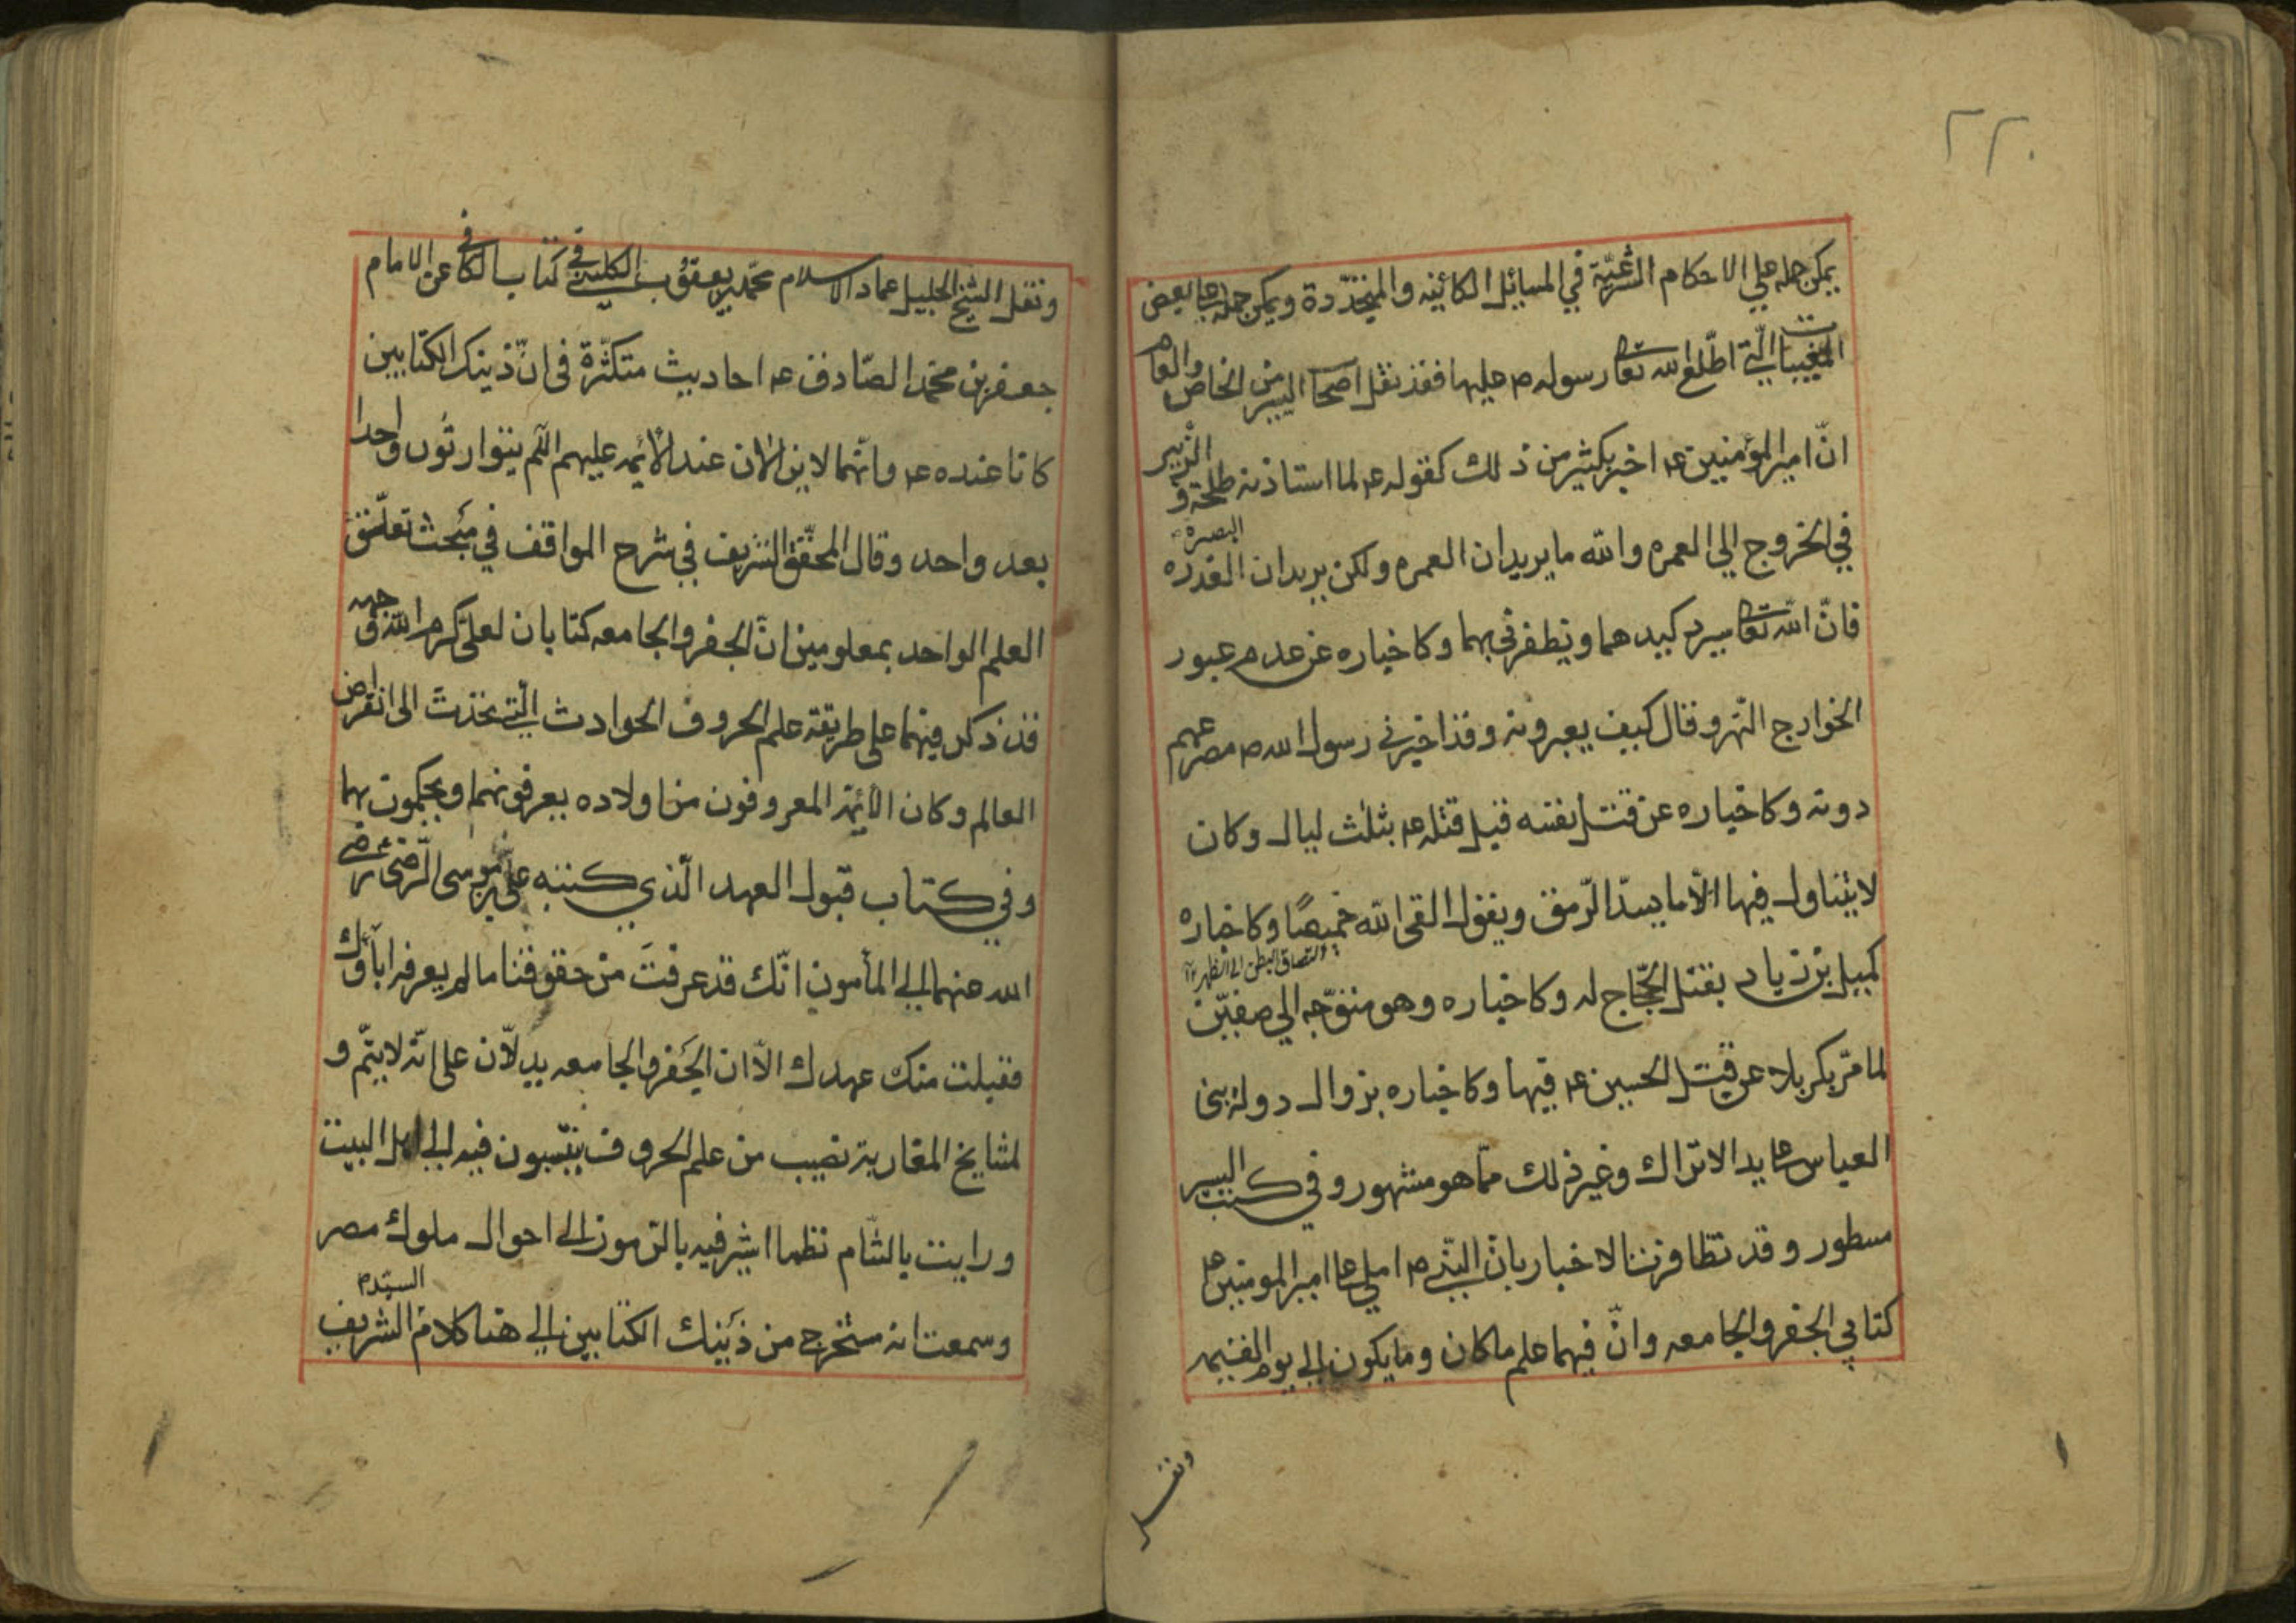 ٢٢٠
يمكن حمله على الاحكام الشرعيّة في المسايل الكائنه والمتجدّدة ويمكن حمله على بعض
المغيبات الّتي اطّلع الله تعالى رسوله ص عليها فقد نقل اصحاب السير من الخاص والعام
انّ امير المؤمنين ع اخبر بكثير من ذلك كقوله ع لما استاذنه طلحة و الزبير
في الخروج الى العمره والله ما يريدان العمره ولكن يريدان الغدره البصرة
فانّ الله تعالى سيرد كيدهما ويظفرني بهما وكاخباره عن عدم عبور
الخوارج النّهر وقال كيف يعبرونه وقد اخبرني رسول الله ص مصرعهم
دونه وكاخباره عن قتل نفسه قبل قتله ع بثلث ليال وكان
لا يتناول فيها الّا ما يسدّ الرّمق ويقول القى الله خميصًا وكاخباره
التصاق البطن الى الظهر
كميل بن زياد بقتل الحجّاج له وكاخباره وهو متوجّه الى صفيّن
لما مرّ بكربلا عن قتل الحسين ع فيها وكاخباره بزوال دولة بنى
العباس على يد الاتراك وغير ذلك ممّا هو مشهور وفي كتب السير
مسطور وقد تظافرت الاخبار بانّ النبّي ص املى على امير المومنين ع
كتابي الجفر والجامعه وانّ فيهما علم ما كان وما يكون الى يوم القيمه
ونقل
ونقل الشيخ الجليل عماد الاسلام محمّد بن يعقوب الكليني في كتاب الكافي عن الامام
جعفر بن محمد الصّادق ع احاديث متكثّرة فى انّ ذينك الكتابين
كانا عنده ع وانّهما لا يزالان عند الائمه عليهم السّلم يتوارثون واحدا
بعد واحد وقال المحقّق الشريف في شرح المواقف في مبحث تعلّق
العلم الواحد بمعلومين انّ الجفر والجامعه كتابان لعلىّ كرم الله وجهه
قد ذكر فيهما على طريقة علم الحروف الحوادث الّتي تحدث الى انقراض
العالم وكان الائمّة المعروفون من اولاده يعرفونهما ويحكمون بهما
وفي كتاب قبول العهد الّذي كتبه على بن موسى الرّضى رضى
الله عنهما الى المأمون انّك قد عرفت من حقوقنا ما لم يعرفه اباؤك
فقبلت منك عهدك الّا ان الجَفر والجامعه يدلّان على انّه لا يتمّ و
لمشايخ المغاربة نصيب من علم الحروف ينتسبون فيه الى اهل البيت
ورايت بالشّام نظما اشير فيه بالرّموز الى احوال ملوك مصر
وسمعت انه مستخرج من ذَينك الكتابين الى هنا كلام السيّد الشريف